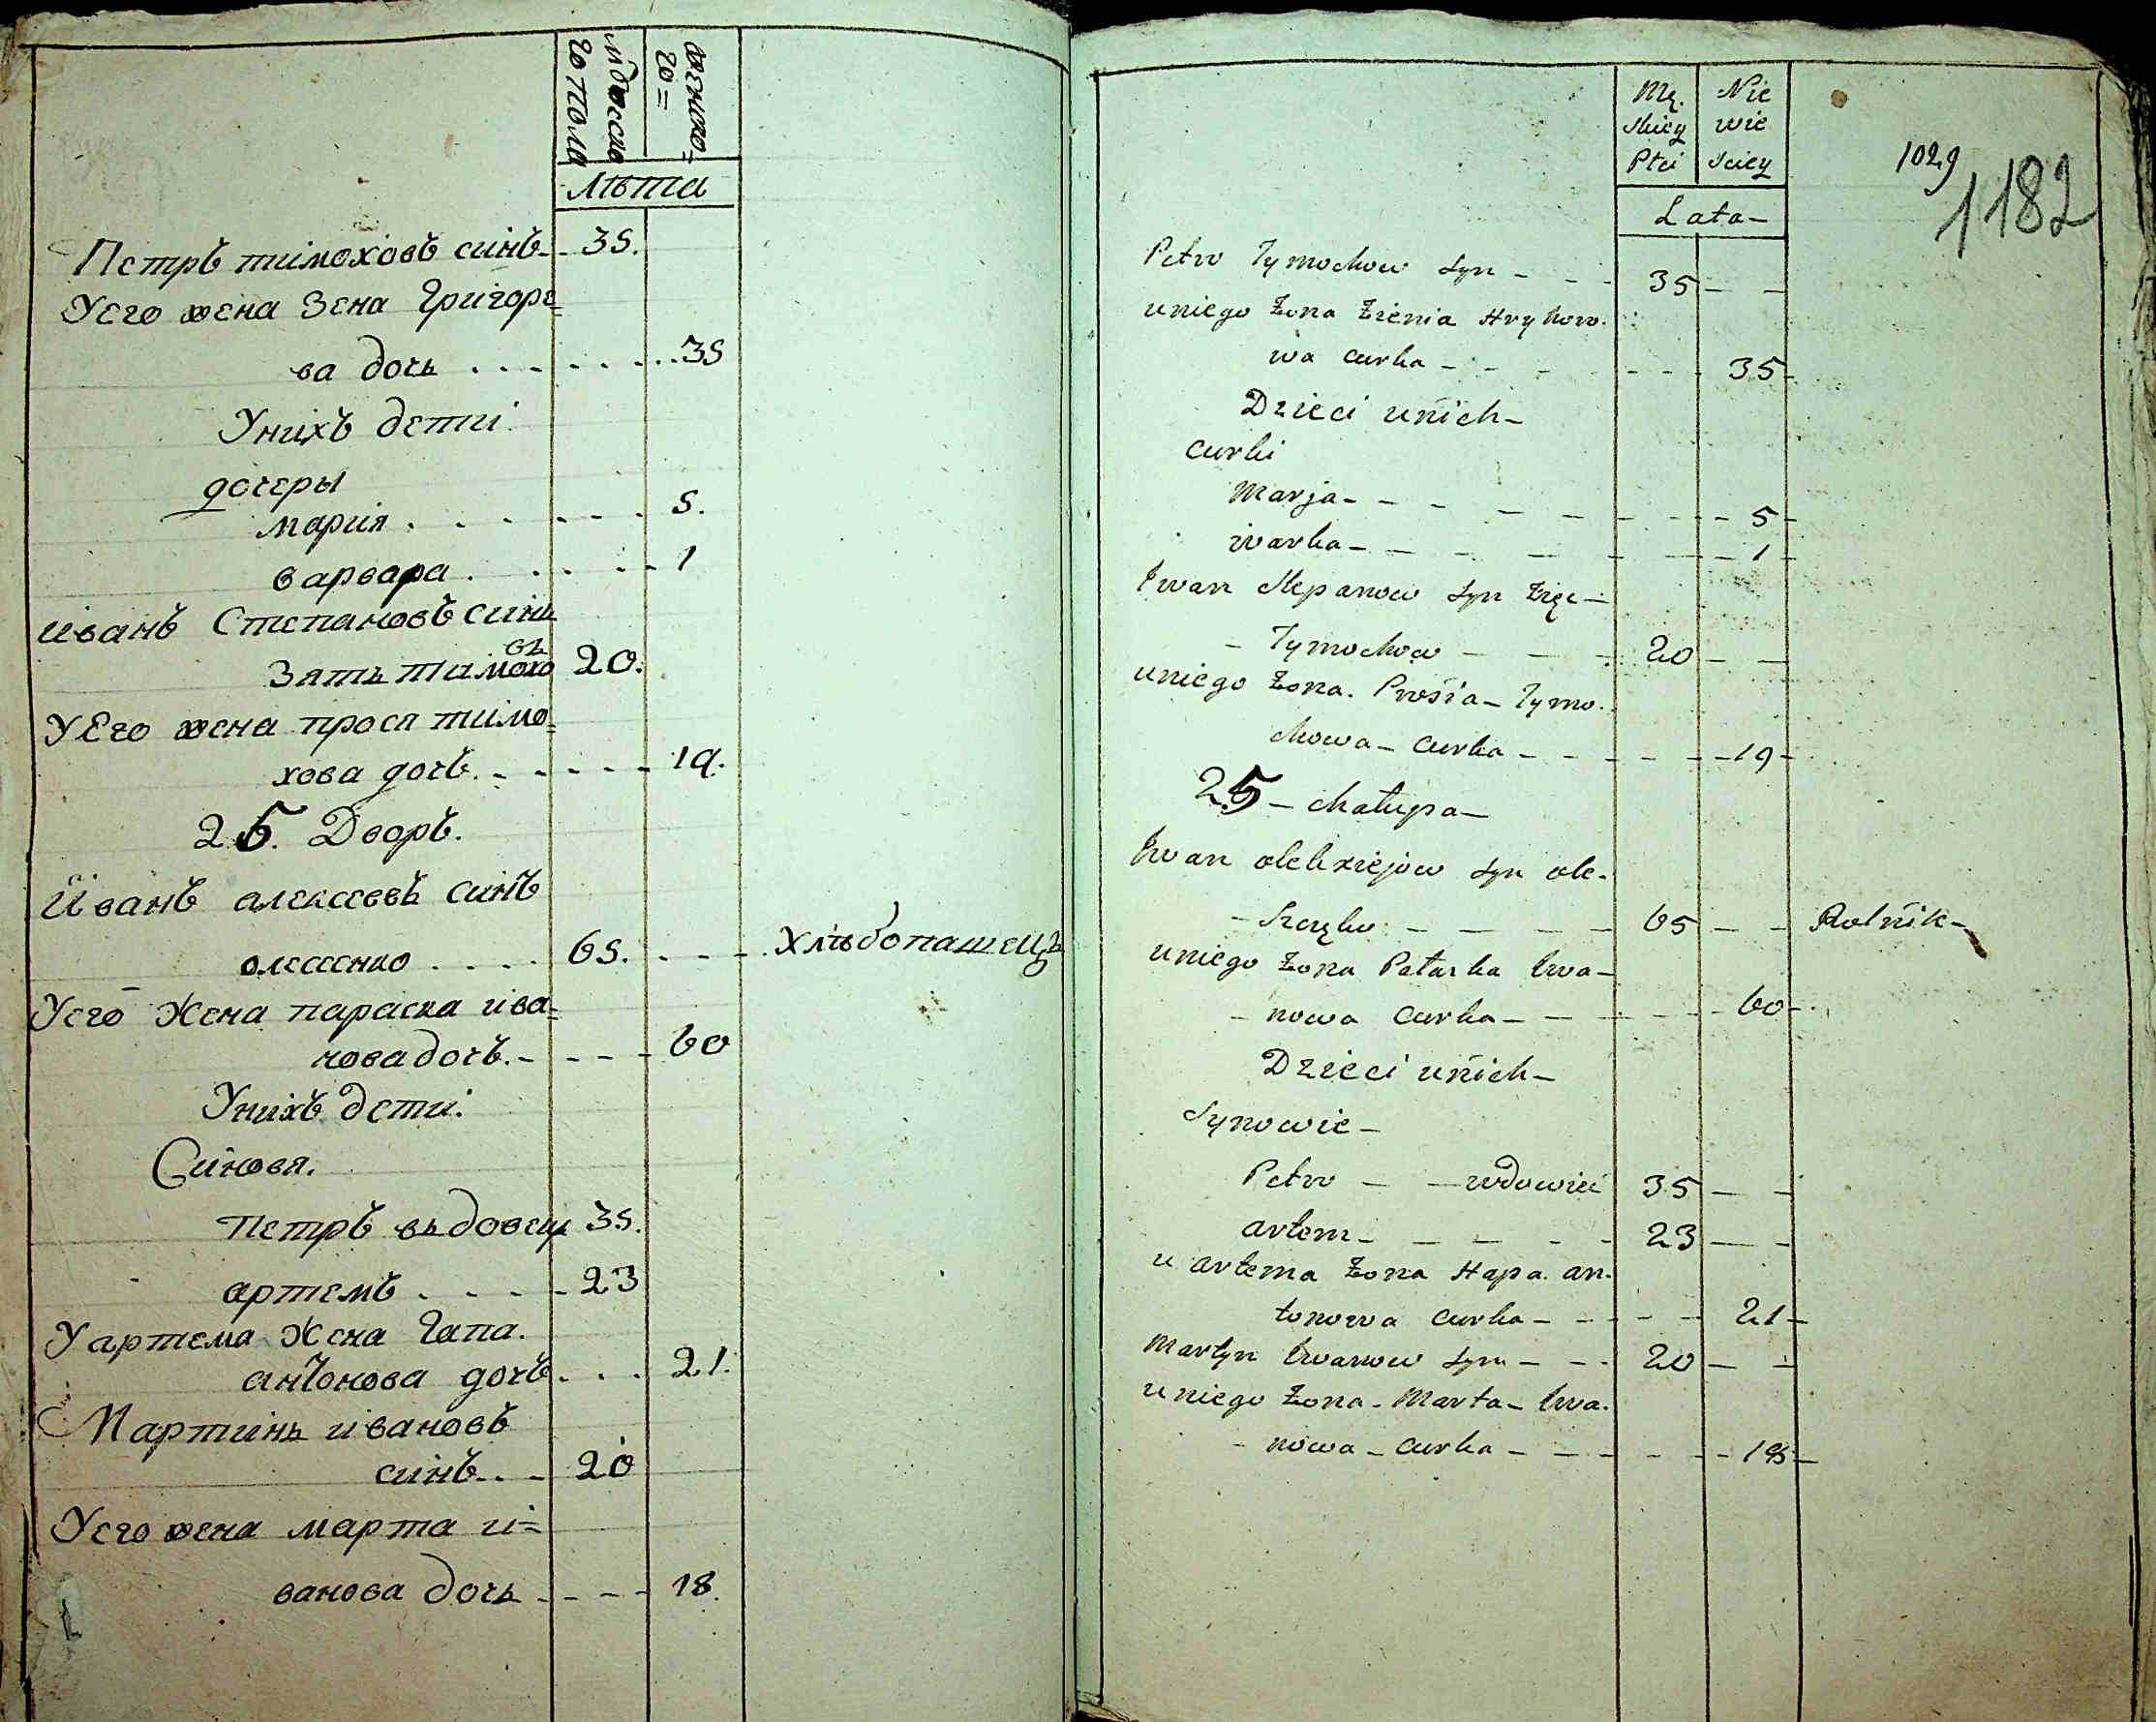 мужеска
го пола
женско=
го=
лѣта
Петръ тимоховъ синъ 35.
Уего жена Зена Григоре=
ва дочь 35
Унихъ дети
дочеры
мария 5.
варвара 1
иванъ Степановъ синъ
Зять тимохо въ 20.
У Его жена прося тимо=
хова дочъ 19.
25. Дворъ.
Иванъ алексеевъ синъ
65. хлѣбопашецъ
Уего Жена параска ива=
нова дочъ. 60
Унихъ дети.
Синовя.
Петръ вьдовец 35.
артемъ 23
Уартема Жена Гапа.
антонова дочъ 21.
Мартинь ивановъ
синъ 20
Уего жена марта и=
ванова дочь 18.
Mę. Nie
skiey wie
Płci sciey
Lata
1029
1182
Petro Tymochow Syn 35
uniego Żona Zienia Hryhoro.
wa curka 35
Dzieci unich
curki
Marja 5
warka 1
Iwan Stepanow Syn Zięć
Tymochow 20
uniego Żona. Prosia Tymo.
chowa curka 19
25 chałupa
Iwan olexiejow Syn ole.
65 Rolnik
uniego Żona Paraska Iwa
nowa curka 60
Dzieci unich
Synowie
Petro wdowiec 35
artem 23
u artema Żona Hapa. an.
tonowa curka 21
Martyn Iwanow Syn 20
uniego Żona Marta Iwa.
nowa curka 18